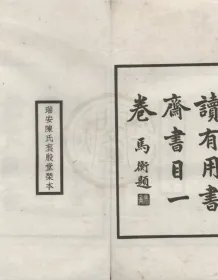 讀有用書
齋書目一
卷 馬衡題
瑞安陳氏褱殷堂槧本